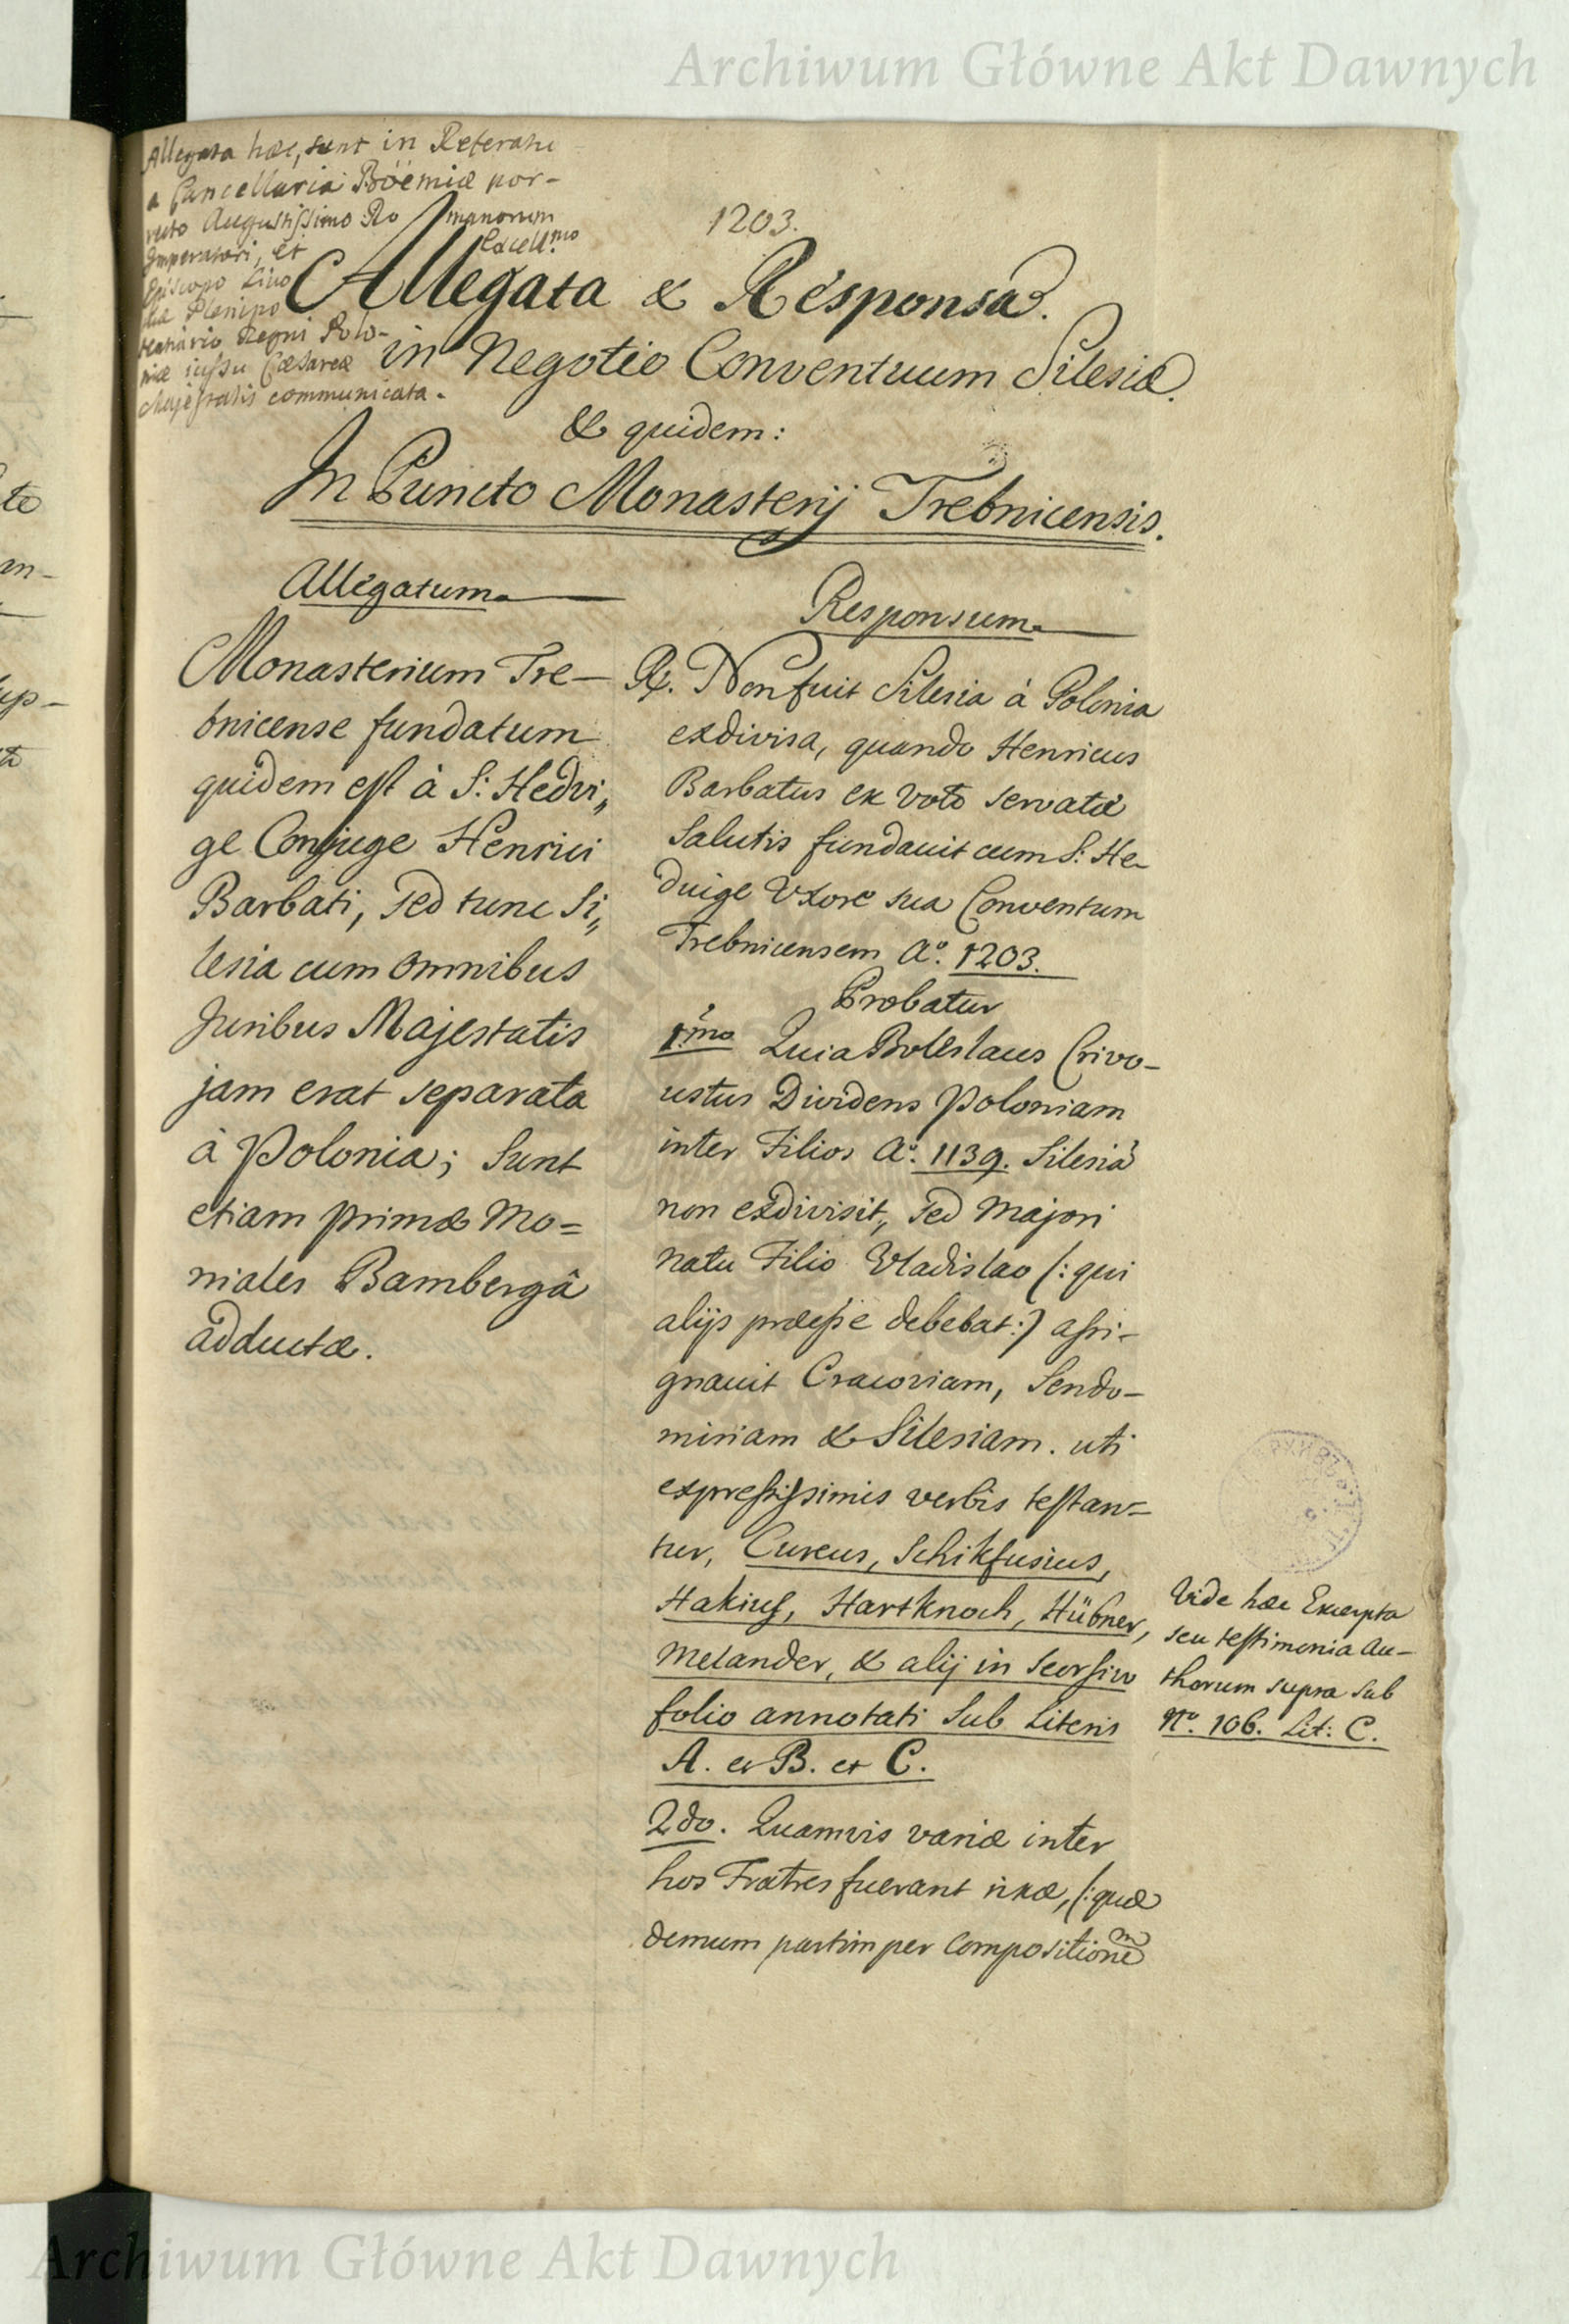 Archiwum Główne Akt Dawnych
Allegata hæc, sunt in Referatu
a Cancellaria Böemiæ por-
recto Augustissimo Romanorum
Imperatori, et Excell.mo
Episcopo Livo
niæ Plenipo
tentiario Regni Polo-
niæ iussu Cæsareæ
Majestatis communicata.
1203.
Allegata & Responsa.
in Negotio Conventuum Silesiæ.
& quidem:
In Puncto Monasterij Trebnicensis.
Allegatum.
Monasterium Tre-
bnicense fundatum
quidem est à S: Hedvi„
ge Conjuge Henrici
Barbati, sed tunc Si„
lesia cum omnibus
Juribus Majestatis
jam erat separata
à Polonia; Sunt
etiam primæ Mo=
niales Bambergâ
adductæ.
Responsum.
Rx. Non fuit Silesia à Polonia
exdivisa, quando Henricus
Barbatus ex voto servatæ
Salutis fundavit cum S: He-
dvige Vxore sua Conventum
Trebnicensem Aº. 1203.
Probatur
1.mo Quia Boleslaus Crivo-
ustus Dividens Poloniam
inter Filios Aº. 1139. Silesiã
non exdivisit, sed Majori
natu Filio Vladislao (: qui
alijs præesse debebat :) assi-
gnavit Cracoviam, Sendo-
miriam & Silesiam. uti
expressissimis verbis testan=
tur, Cureus, Schikfusius,
Hakius, Hartknoch, Hübner,
Melander, & alij in Seorsivo
folio annotati Sub Literis
A. et B. et C.
2do. Quamvis variæ inter
hos Fratres fuerant rixæ, (: quæ
demum partim per Compositionem
Vide hæc Excerpta
seu testimonia Au-
thorum supra sub
Nº. 106. Lit: C.
Archiwum Główne Akt Dawnych